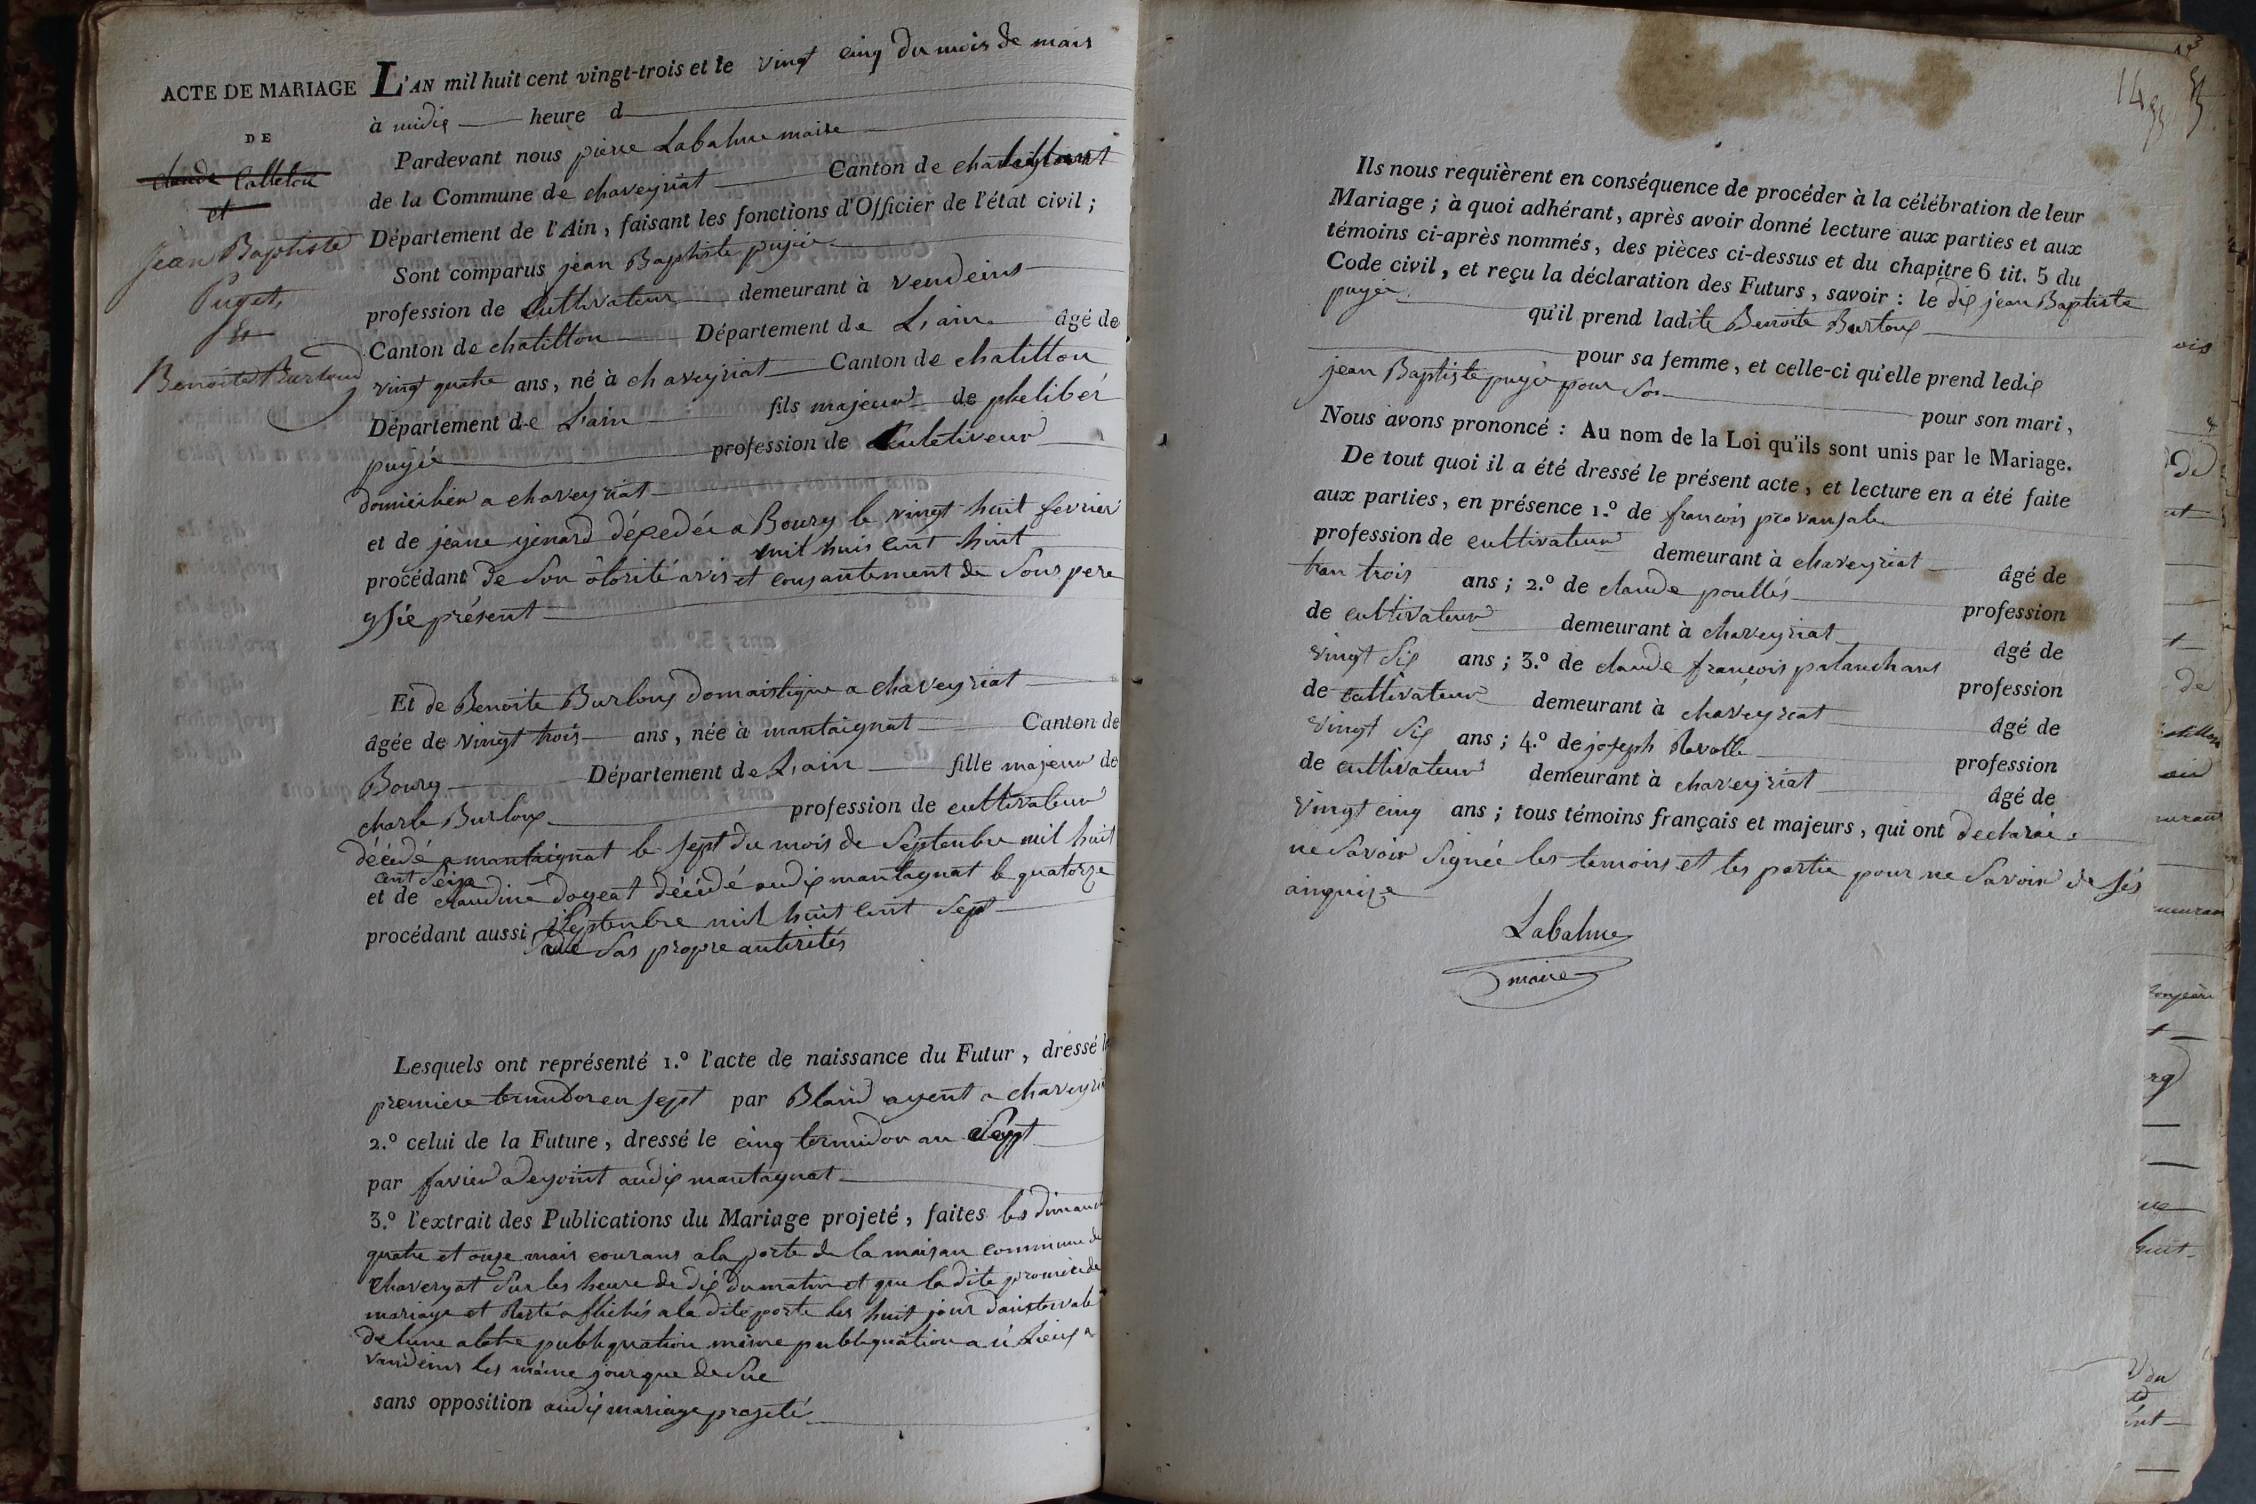 ACTE DE MARIAGE
DE
claude Calleton
et
Jean Baptiste
Puget,
&
Benoite Burloud
L'AN mil huit cent vingt-trois et le vingt cinq du mois de mais
à midis heure d
Pardevant nous pierre Labalme maire
de la Commune de chaveyriat Canton de chatillont
Département de l'Ain, faisant les fonctions d'Officier de l'état civil;
Sont comparus jean Baptiste pujée
profession de Cultivateur demeurant à vendeins
Canton de chatillon Département de L'ain âgé de
vingt quatre ans, né à chaveyriat Canton de chatillon
Département de L'ain fils majeur de pheliber
pugée profession de Culetiveur
domicilien a chaveyriat
et de jeane genard décedée a Bourg le vingt huit fevrier
mil huis cent huit
procédant de son ôtorité avis et consantement de Sons pere
ysie présent
Et de Benoite Burloux domaistique a chaveyriat
âgée de vingt trois ans, née à mantaignat Canton de
Bourg Département de L'ain fille majeur de
charle Burloux profession de cultivateur
décédé a mantaignat le sept du mois de Septenbre mil huit
cent Seize
et de claudine doyeat décédé audix mantagnat le quatorze
Septenbre mil huit cent Sept
procédant aussi de Sas propre autirités
Lesquels ont représenté 1.º l'acte de naissance du Futur, dressé le
premiere termudor en sept par Blain agent a chaveyri
2.º celui de la Future, dressé le cinq termidor an Sept
par favier adejoint audix mantagnat
3.º l'extrait des Publications du Mariage projeté, faites les dimanc
quatre et onze mais courans a la porte de la maison commune de
chaveryat Sur les heure de dix du matin et que la dite promese de
mariage et Resté afichés a la dite porte les huit jour d'aintervale
de lune alotre publiquation même publiquation a ù Lieux a
vandeins les même jour que de Sue
sans opposition audix mariage projeté
14
Ils nous requièrent en conséquence de procéder à la célébration de leur
Mariage; à quoi adhérant, après avoir donné lecture aux parties et aux
témoins ci-après nommés, des pièces ci-dessus et du chapitre 6 tit. 5 du
Code civil, et reçu la déclaration des Futurs, savoir: le dix jean Baptiste
pugée qu'il prend ladite Benoite Burloux
pour sa femme, et celle-ci qu'elle prend ledix
jean Baptiste pugée pour Son pour son mari,
Nous avons prononcé: Au nom de la Loi qu'ils sont unis par le Mariage.
De tout quoi il a été dressé le présent acte, et lecture en a été faite
aux parties, en présence 1.º de francois provansale
profession de cultivateur demeurant à chaveyriat âgé de
tran trois ans; 2.º de claude poullés profession
de cultivateur demeurant à chaveyriat âgé de
vingt Six ans; 3.º de claude françois palanchans profession
de cultivateur demeurant à chaveyriat âgé de
vingt Six ans; 4.º de joseph Ravolle profession
de cultivateur demeurant à chaveyriat âgé de
vingt cinq ans; tous témoins français et majeurs, qui ont declarée
ne Savoir Signée les temoins et les partie pour ne Savoir de sés
ainquize
Labalme
maire